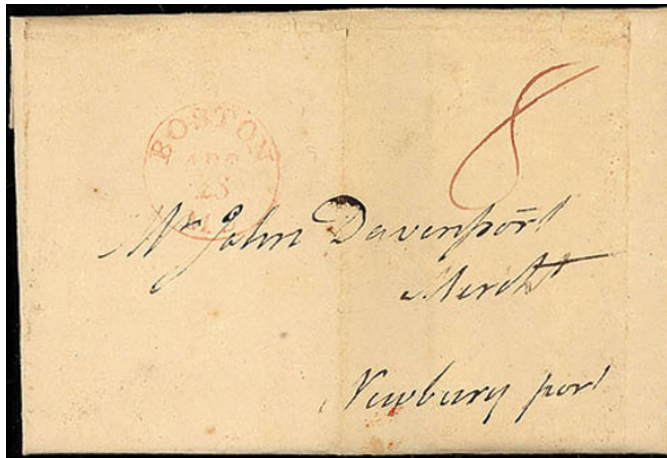 8
BOSTON
APR
23
Mr John Davenport
Mercht
Newbury port